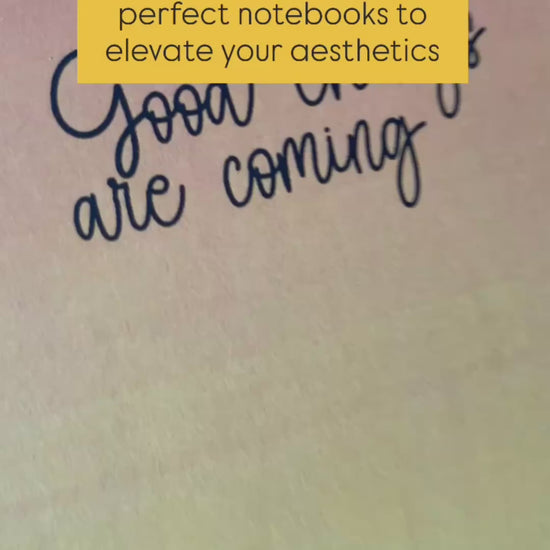 perfect notebooks to
elevate your aesthetics
Good
are coming